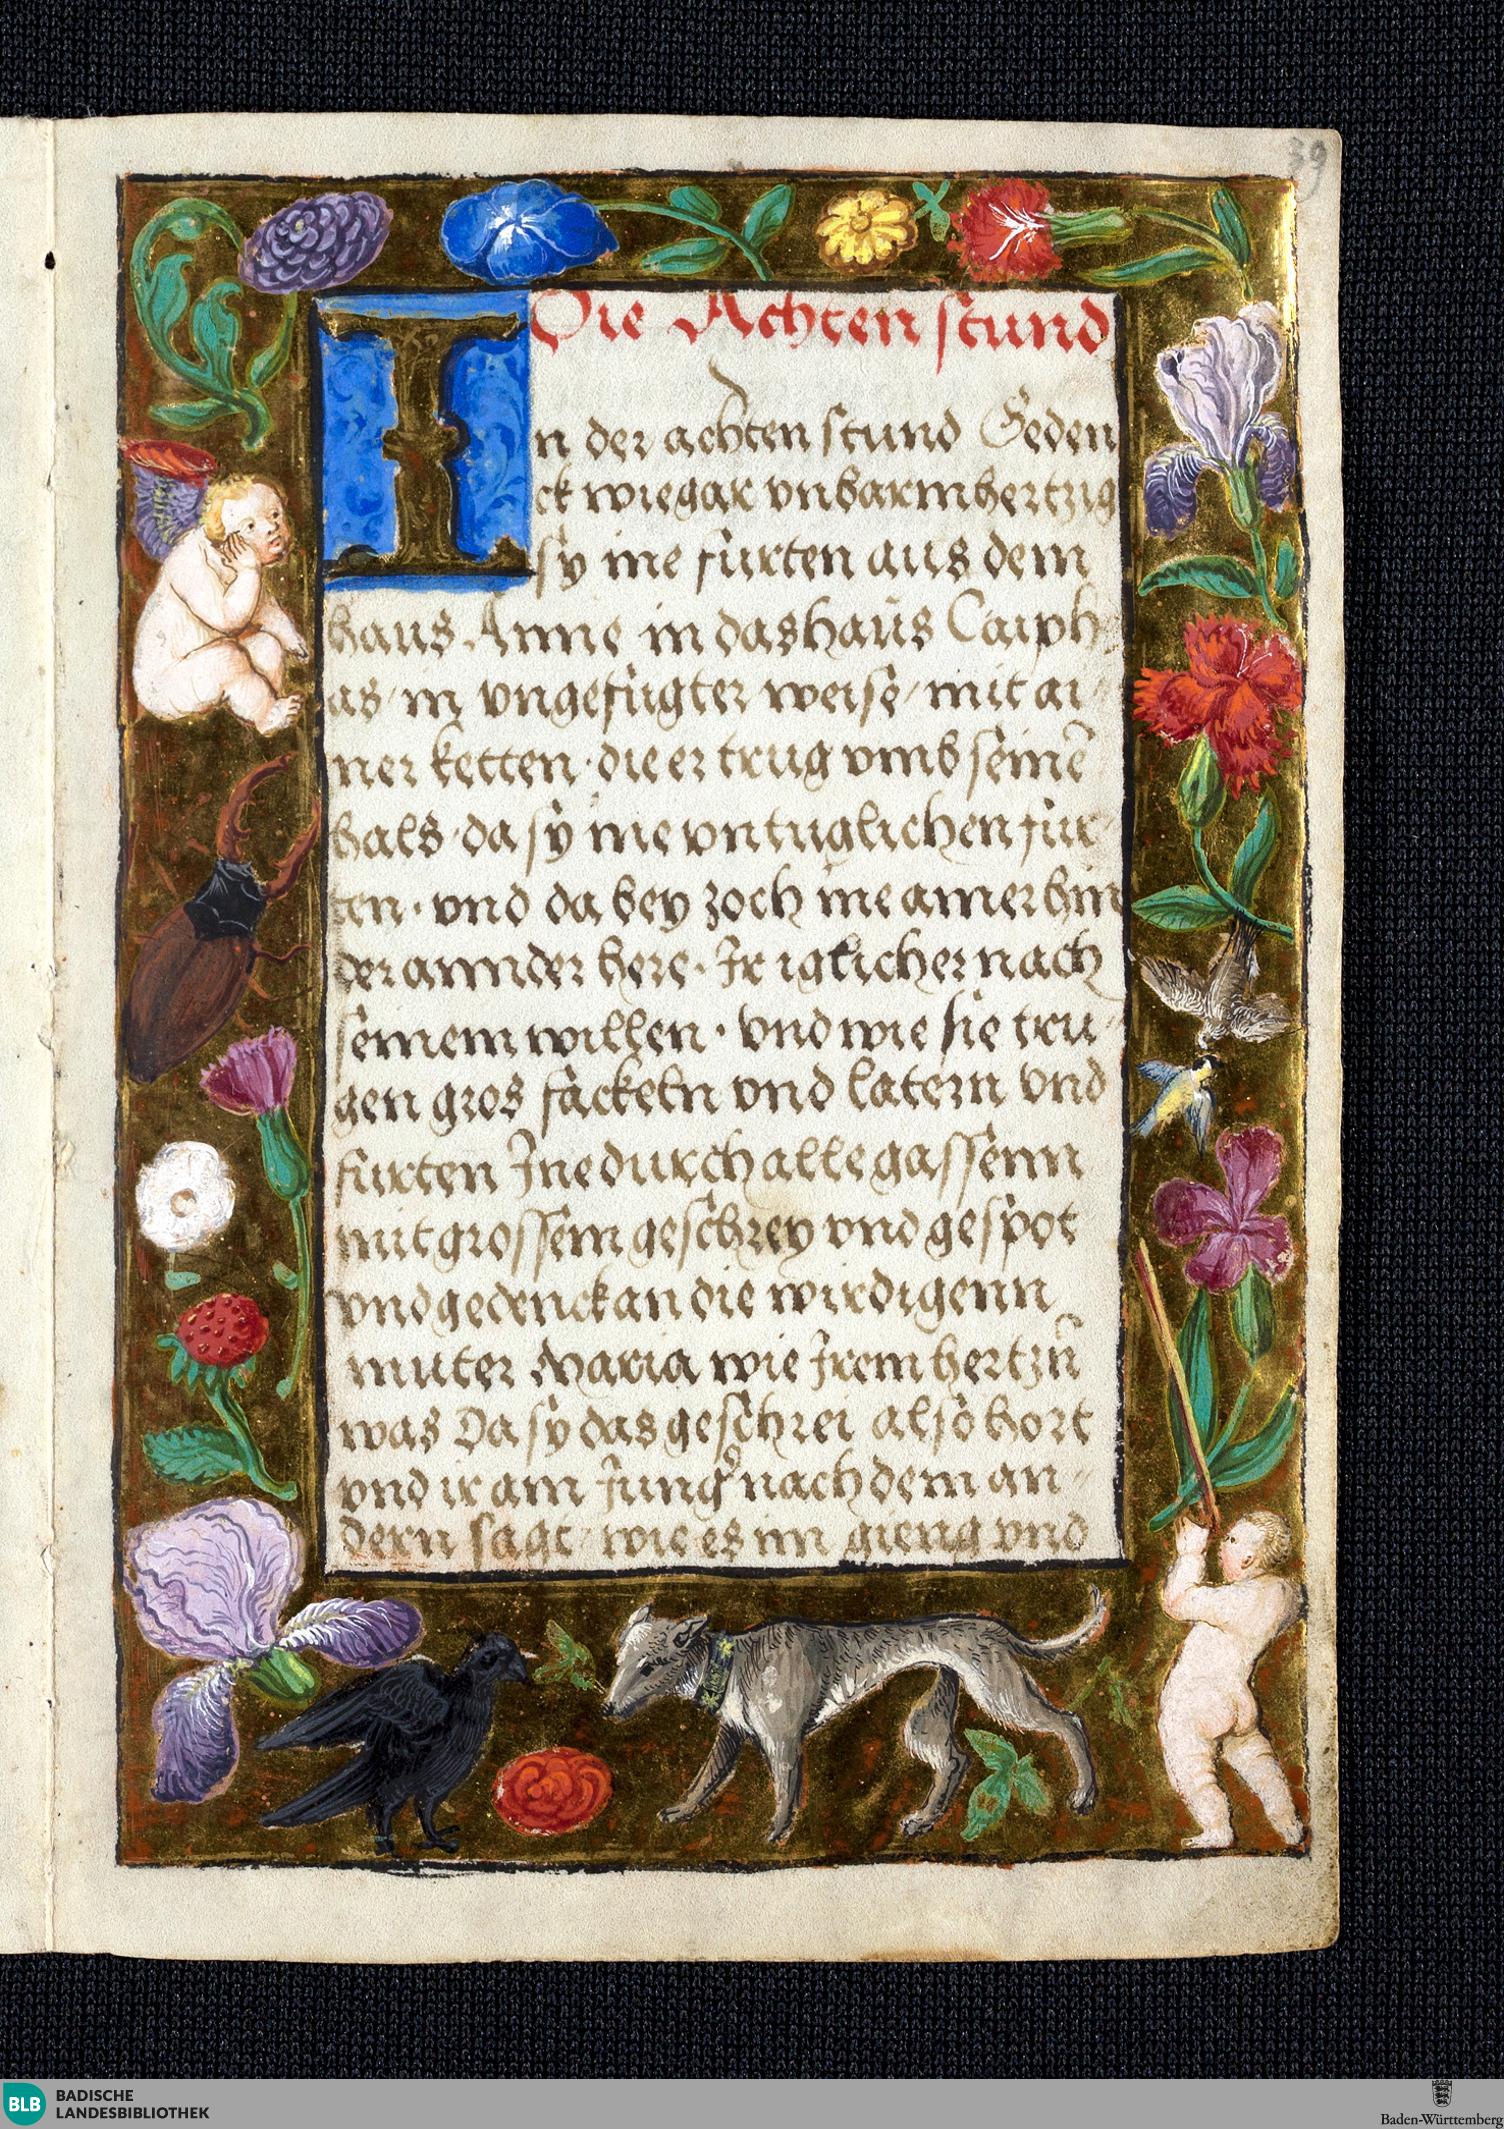 39
Die Achten stund
In der achten stund Geden
ck wie gar vnbarmhertzig
sy ine fürten aus dem
haus Anne in das haüs Caiph
as / in vngefügter weise / mit ai
ner ketten · die er trug vmb seinē
hals · da sy ine vntuglichen für
ten · vnd da bey zoch ine ainer hin
der annder here · Ir iglicher nach
seinem willen · vnd wie sie tru
gen gros fackeln vnd latern vnd
fürten Ine durch alle gassenn
mit grossem geschrey vnd gespot
vnd gedenck an die wirdigenn
muter Maria wie Irem hertzn̄
was Da sy das geschrei also hort
vnd ir ain Jung nach dem an
dern sagt / wie es im gieng vnd
BLB BADISCHE
LANDESBIBLIOTHEK
Baden-Württemberg